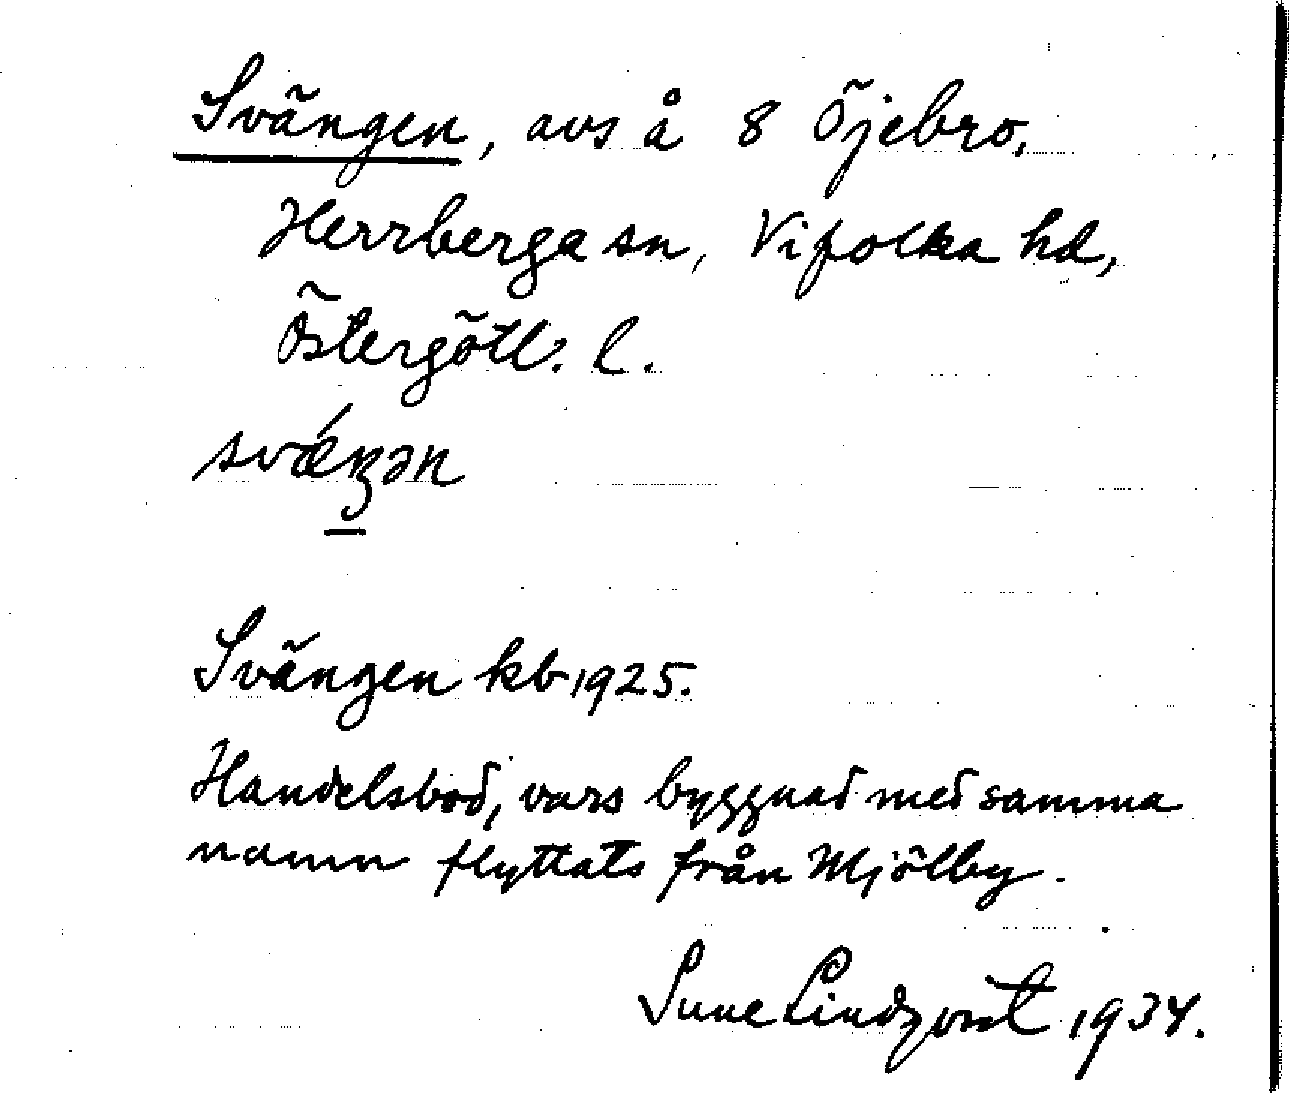 Svängen, avs å 8 Öjebro,
Herrberga sn, Vifolka hd,
Östergötl. l.
svǽŋən
Svängen kb 1925.
Handelsbod, vars byggnad med samma
namn flyttats från Mjölby.
Sune Lindqvist 1934.